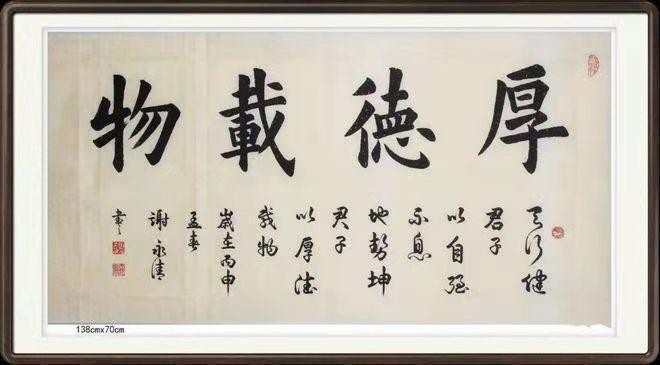 厚德載物
天行健
君子
以自强
不息
地勢坤
君子
以厚德
載物
歲在丙申
孟春
謝永清
書
138cmx70cm